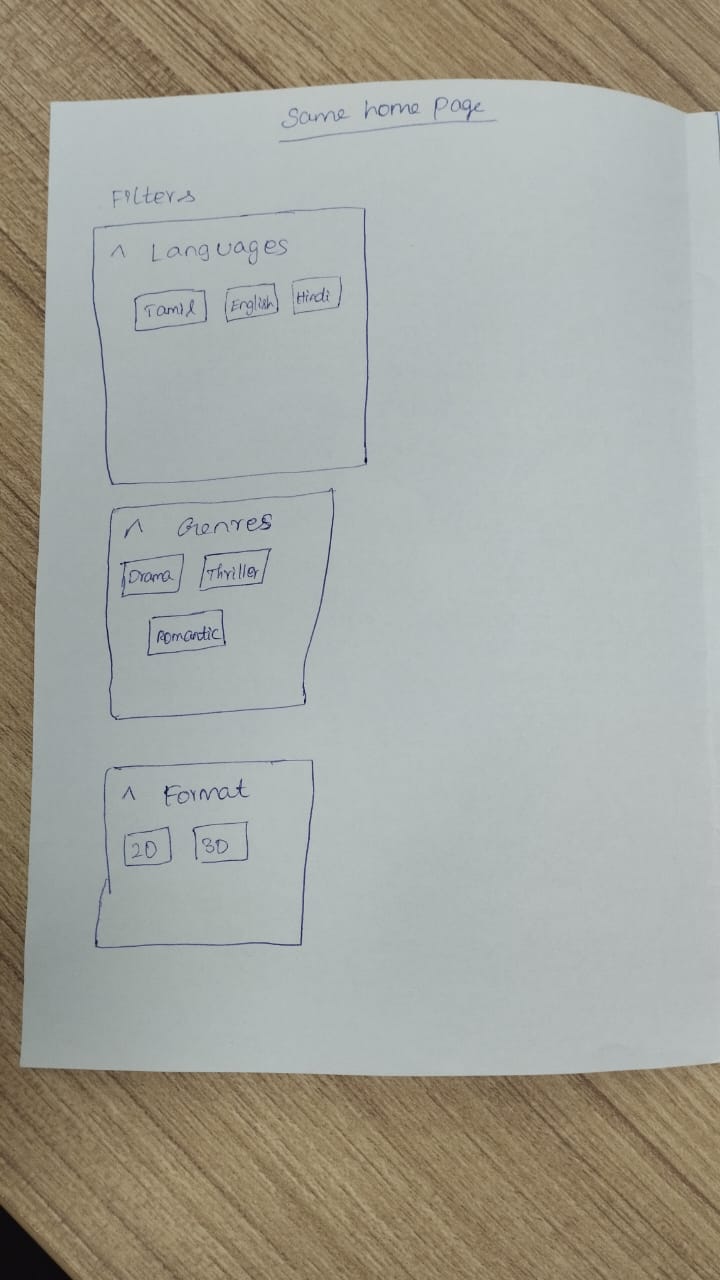 Same home page
Filters
^ Languages
Tamil English Hindi
^ Genres
Drama Thriller
Romantic
^ Format
2D 3D